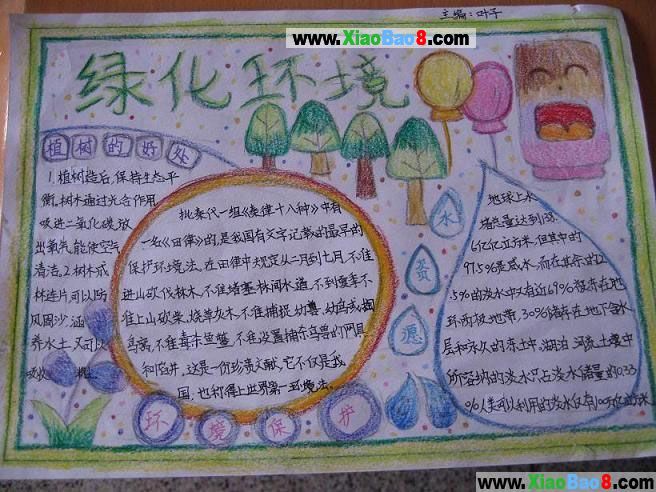 www.XiaoBao8.com
主编:叶子
绿化环境
植树的好处
1.植树造后,保持生态平
衡,树木通过光合作用
吸进二氧化碳,放
出氧气,能使空气
清洁。2.树木成
林连片,可以防
风固沙,涵
养水土,又可以
吸收
批秦代一组《秦律十八种》中有
一名《田律》的,是我国有文字记载的最早的
保护环境法。在田律中规定从二月到七月,不准
进山砍伐林木,不准堵塞林间水道,不到夏季不
准上山砍柴,烧草灰木,不准捕捉幼兽,幼鸟或掏
鸟窝,不准毒杀鱼鳖,不准设置捕杀鸟兽的网具
和陷井,这是一份珍贵文献,它不仅是我
国,也称得上世界第一环境法。
水
资
愿
地球上水
储总量达到138.
6亿亿立方米,但其中的
97.5%是咸水,而在其余的2
.5%的淡水中又有近69%被冻在地
球两极地带,30%储存在地下含水
层和永久的冻土中。湖泊、河流、土壤中
所容纳的淡水只占淡水储量的0.33
%人类可以利用的淡水仅有
环境保护
www.XiaoBao8.com